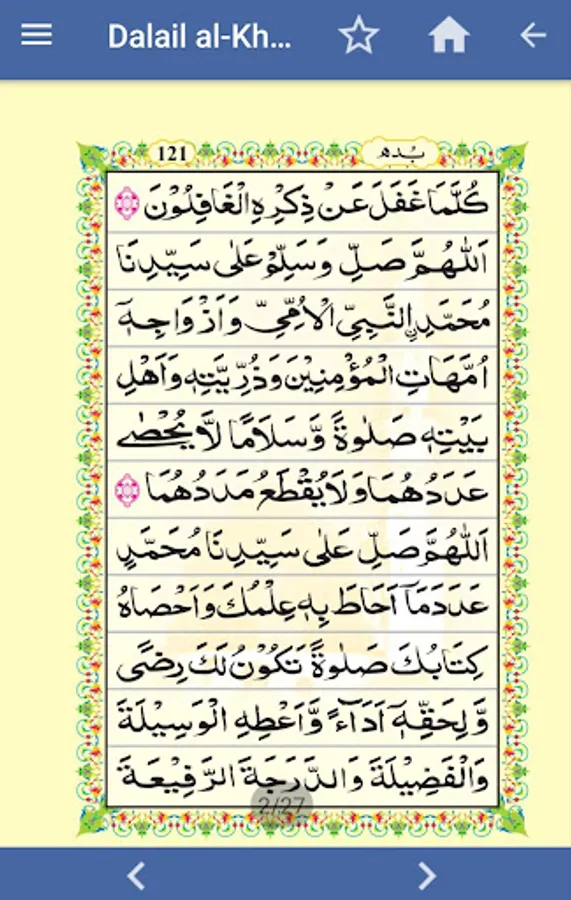 Dalail al-Kh...
121
بدھ
كُلَّمَا غَفَلَ عَنْ ذِكْرِهِ الْغَافِلُوْنَ
اَللّٰهُمَّ صَلِّ وَسَلِّمْ عَلٰى سَيِّدِنَا
مُحَمَّدِ ࣙالنَّبِيِّ الْاُمِّيِّ وَاَزْوَاجِهٖٓ
اُمَّهَاتِ الْمُؤْمِنِيْنَ وَذُرِّيَّتِهٖ وَاَهْلِ
بَيْتِهٖ صَلٰوةً وَّسَلَامًا لَّا يُحْصٰى
عَدَدُهُمَا وَلَا يُقْطَعُ مَدَدُهُمَا
اَللّٰهُمَّ صَلِّ عَلٰى سَيِّدِنَا مُحَمَّدٍ
عَدَدَ مَآ اَحَاطَ بِهٖ عِلْمُكَ وَاَحْصَاهُ
كِتَابُكَ صَلٰوةً تَكُوْنُ لَكَ رِضًى
وَّلِحَقِّهٖٓ اَدَآءً وَّاَعْطِهِ الْوَسِيْلَةَ
وَالْفَضِيْلَةَ وَالدَّرَجَةَ الرَّفِيْعَةَ
2/27